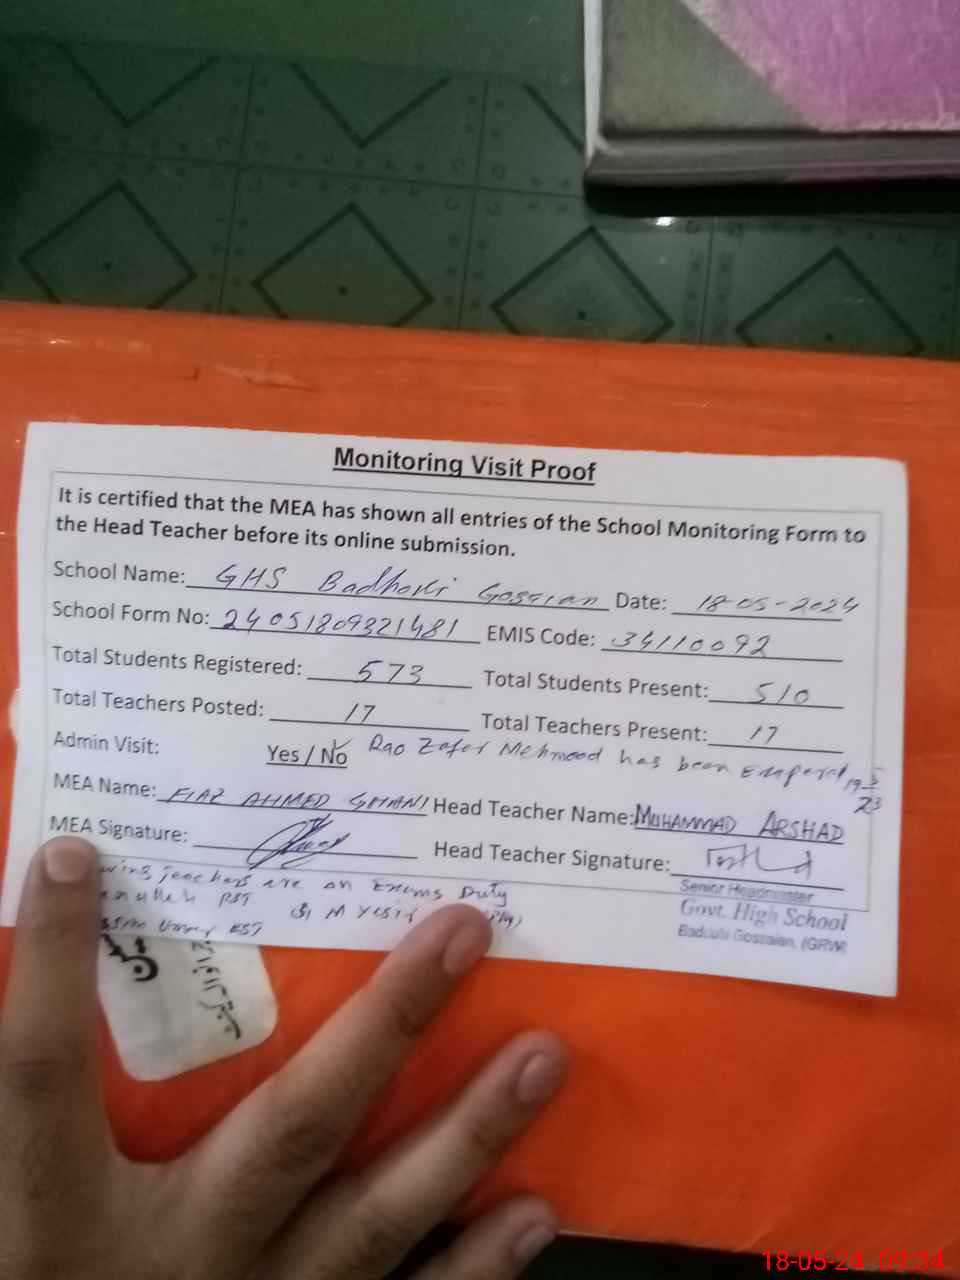 Monitoring Visit Proof
It is certified that the MEA has shown all entries of the School Monitoring Form to
the Head Teacher before its online submission.
School Name: GHS Badhoki Gossian Date: 18-05-2024
School Form No: 24051809321481 EMIS Code: 34110092
Total Students Registered: 573 Total Students Present: 510
Total Teachers Posted: 17 Total Teachers Present: 17
Admin Visit: Yes / No Rao Zafar Mehmood has been
MEA Name: FIAZ AHMED GHANI Head Teacher Name: MUHAMMAD ARSHAD
MEA Signature: Head Teacher Signature:
teachers are on Exams Duty
PST M Yasir
EST
Senior Headmaster
Govt. High School
Gossaian, (GRW)
18-05-24 09:34